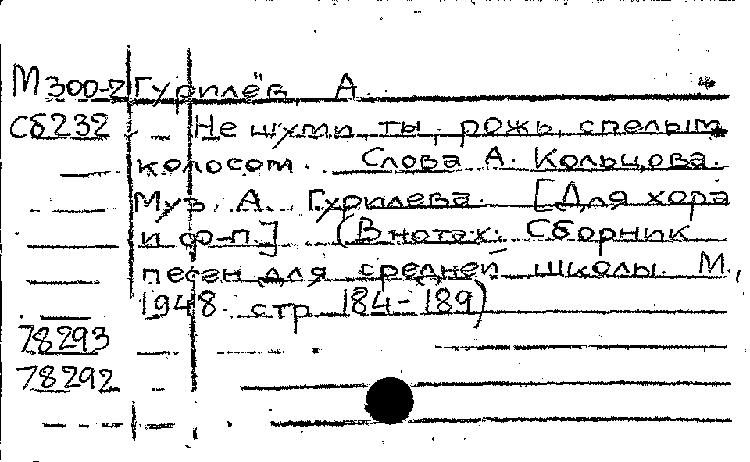 М300-2 Гурилёв, А.
Сб232 Не шуми ты, рожь, спелым
колосом. Слова А. Кольцова.
Муз. А. Гурилева. [Для хора
и ф-п.] (В нотах: Сборник
песен для средней школы. М.,
1948. стр 184-189)
78293
78292